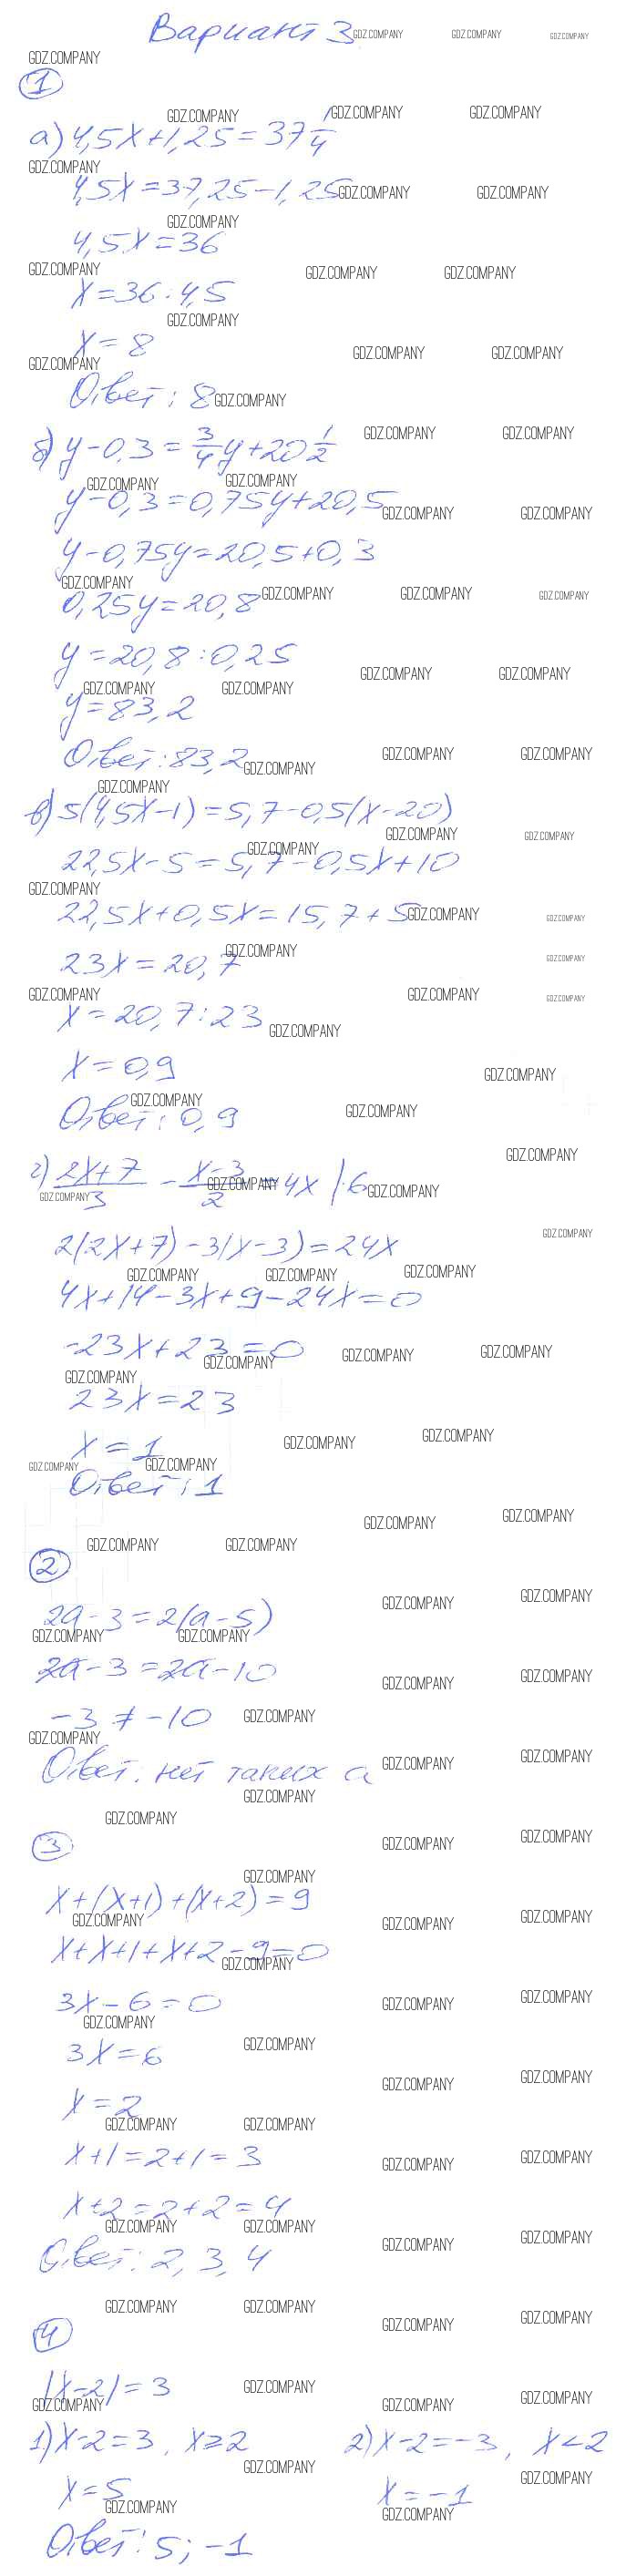 Вариант 3
1
а) 4,5x+1,25=37 1/4
4,5x=37,25-1,25
4,5x=36
x=36:4,5
x=8
Ответ: 8
б) y-0,3=3/4y+20 1/2
y-0,3=0,75y+20,5
y-0,75y=20,5+0,3
0,25y=20,8
y=20,8:0,25
y=83,2
Ответ: 83,2
в) 5(4,5x-1)=5,7-0,5(x-20)
22,5x-5=5,7-0,5x+10
22,5x+0,5x=15,7+5
23x=20,7
x=20,7:23
x=0,9
Ответ: 0,9
г) (2x+7)/3 - (x-3)/2 = 4x |·6
2(2x+7)-3(x-3)=24x
4x+14-3x+9-24x=0
-23x+23=0
23x=23
x=1
Ответ: 1
2
2a-3=2(a-5)
2a-3=2a-10
-3≠-10
Ответ: нет таких a
3
x+(x+1)+(x+2)=9
x+x+1+x+2-9=0
3x-6=0
3x=6
x=2
x+1=2+1=3
x+2=2+2=4
Ответ: 2, 3, 4
4
|x-2|=3
1) x-2=3, x≥2 2) x-2=-3, x<2
x=5 x=-1
Ответ: 5; -1
GDZ.COMPANY